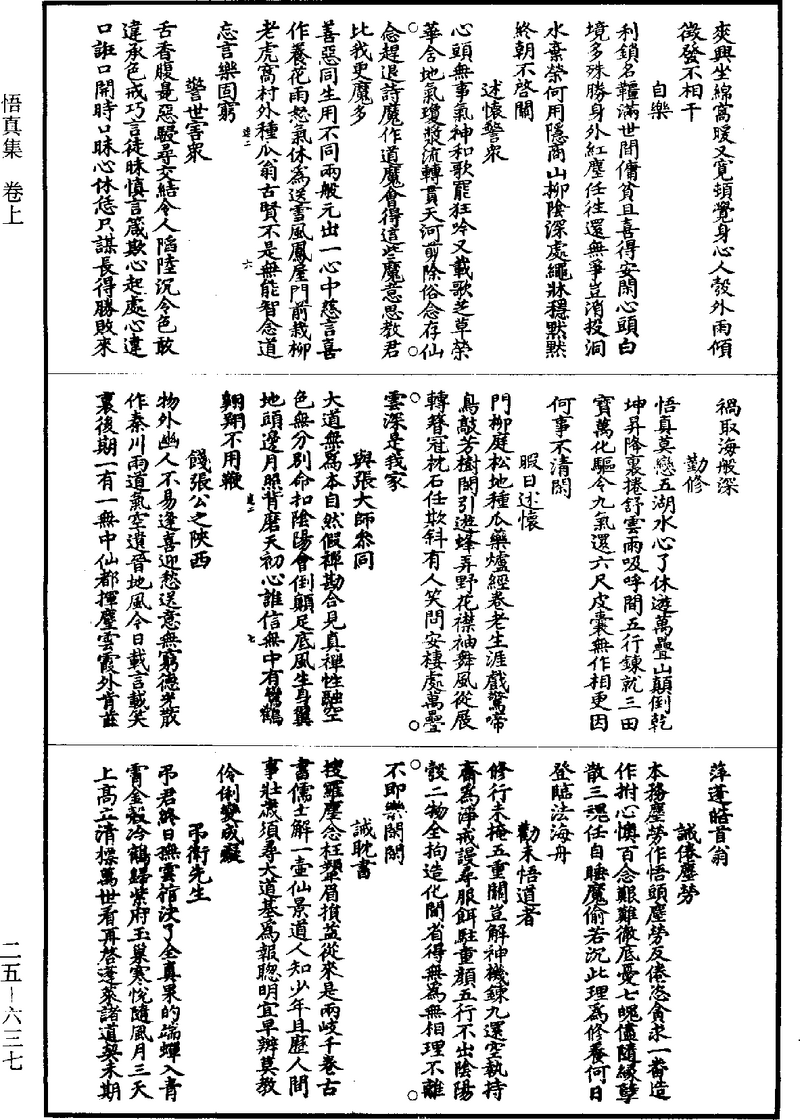 悟真集 卷上
爽興坐綿窩暖又寬頓覺身心人殼外雨傾
徵發不相干
自樂
利鎖名韁滿世間傭貧且喜得安閑心頭白
境多殊勝身外紅塵任往還無爭豈消投洞
水棄榮何用隱商山柳陰深處繩牀穩默默
終朝不啓關
述懷警衆
心頭無事氣神和歌罷狂吟又載歌芝草榮
華含地氣瓊漿流轉貫天河剪除俗念存仙
念趕退詩魔作道魔會得這些魔意思教君
比我更魔多
善惡同生用不同兩般元出一心中慈言喜
作養花雨怒氣休為送雪風鳳屋門前栽柳
老虎窩村外種瓜翁古賢不是無能智念道
忘言樂固窮
警世害衆
舌香腹臭惡騣尋交結令人陷陸沉令色敢
違承色戒巧言徒昧慎言箴欺心起處心違
口誑口開時口昧心休恁只謀長得勝敗來
禍取海般深
勤修
悟真莫戀五湖水心了休遊萬疊山顛倒乾
坤昇降裏捲舒雲雨吸呼間五行鍊就三田
寶萬化驅令九氣還六尺皮囊無作相更因
何事不清閑
暇日述懷
門柳庭松地種瓜藥爐經卷老生涯戲驚啼
鳥敲芳樹閑引遊蜂弄野花襟袖舞風從展
轉簪冠枕石任欹斜有人笑問安棲處萬疊
雲深是我家
與張大師參同
大道無為本自然假禪勘合見真禪性融空
色無分別命扣陰陽會倒顛足底風生身翼
地頭邊月照背磨天初心誰信無中有鸞鶴
翱翔不用鞭
餞張公之陝西
物外幽人不易逢喜迎愁送意無窮德光散
作秦川雨道氣空遺晉地風今日載言載笑
裏後期一有一無中仙都揮麈雲霞外肯玆
萍蓬皓首翁
誡倦塵勞
本務塵勞作悟頭塵勞反倦恣貪求一番造
作拊心懊百念艱難徹底憂七魄儘隨緣孽
散三魂任自睡魔偷若沉此理為修養何日
登臨法海舟
勸未悟道者
修行未掩五重關豈解神機鍊九還空執持
齋為淨戒謾尋服餌駐童顏五行不出陰陽
設二物全拘造化閒省得無為無相理不離
不即樂閑閑
誡耽書
搜羅塵念枉顰眉損益從來是兩岐千卷古
書儒士解一壺仙景道人知少年且歷人間
事壯歲須尋大道基為報聰明宜早辨莫教
伶俐變成癡
弔衛先生
弔君終日撫雲棺決了全真果的端蟬入青
霄金殼冷鶴歸紫府玉巢寒恍隨風月三天
上高立清標萬世看再啓蓬萊諸道契未期
二五—六三七